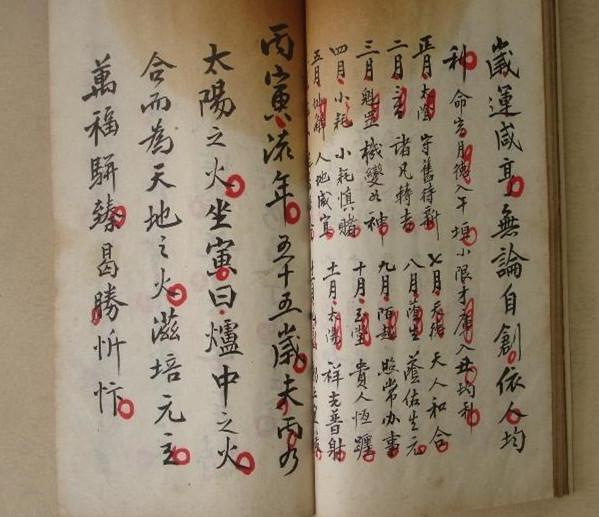 歲運咸亨無論自創依人均
利 命宮月德入午垣小限才庫入丑均利
正月太陰 守舊待新 七月天德 天人和合
二月 諸凡轉吉 八月蔭生 蔭佑生元
三月魁罡 機變如神 九月陌越 照常办事
四月小耗 小耗慎賭 十月玉堂 貴人恆躔
五月 人地咸宜 十一月太陽 祥光普射
丙寅流年五十五歲夫丙乃
太陽之火坐寅曰爐中之火
合而為天地之火滋培元主
萬福駢臻曷勝忻忭